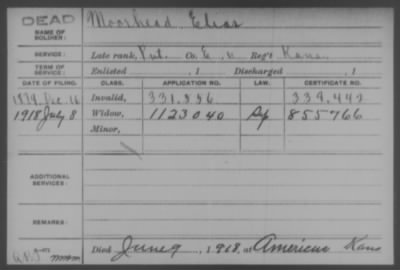 DEAD
NAME OF SOLDIER: Moorhead, Elias
SERVICE: Late rank, Pvt. Co. E, 11 Reg't Kans.
TERM OF SERVICE: Enlisted , 1 Discharged , 1
DATE OF FILING. CLASS. APPLICATION NO. LAW. CERTIFICATE NO.
1879, Dec. 16 Invalid, 331.556 339.449
1918 July 8 Widow, 1123040 855766
Minor,
ADDITIONAL SERVICES:
REMARKS:
Died June 9, 1918, at Americus Kans